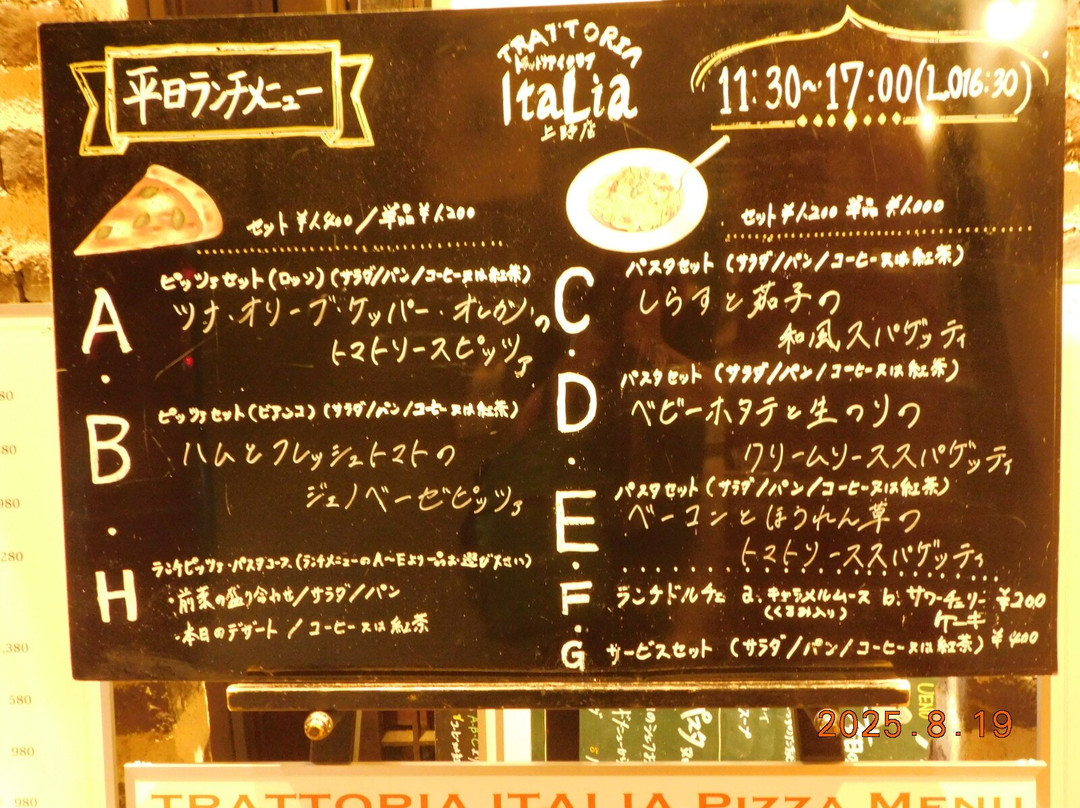 平日ランチメニュー
TRATTORIA
トラットリアイタリア
ItaLia
上野店
11:30~17:00(L.O16:30)
セット ¥1,400/単品 ¥1,200
A
ピッツァセット(ロッソ)(サラダ/パン/コーヒー又は紅茶)
ツナ・オリーブ・ケッパー・オレガノの
トマトソースピッツァ
B
ピッツァセット(ビアンコ)(サラダ/パン/コーヒー又は紅茶)
ハムとフレッシュトマトの
ジェノベーゼピッツァ
H
ランチピッツァ・パスタコース(ランチメニューのA~Eより一品お選び下さい)
・前菜の盛り合わせ/サラダ/パン
・本日のデザート/コーヒー又は紅茶
セット ¥1,200 単品 ¥1,000
C
パスタセット(サラダ/パン/コーヒー又は紅茶)
しらすと茄子の
和風スパゲッティ
D
パスタセット(サラダ/パン/コーヒー又は紅茶)
ベビーホタテと生のりの
クリームソーススパゲッティ
E
パスタセット(サラダ/パン/コーヒー又は紅茶)
ベーコンとほうれん草の
トマトソーススパゲッティ
F
ランチドルチェ a.キャラメルムース b.サワーチェリー ¥200
(くるみ入り) ケーキ
G
サービスセット(サラダ/パン/コーヒー又は紅茶)¥400
980
280
580
980
980
2025.8.19
TRATTORIA ITALIA Pizza Menu